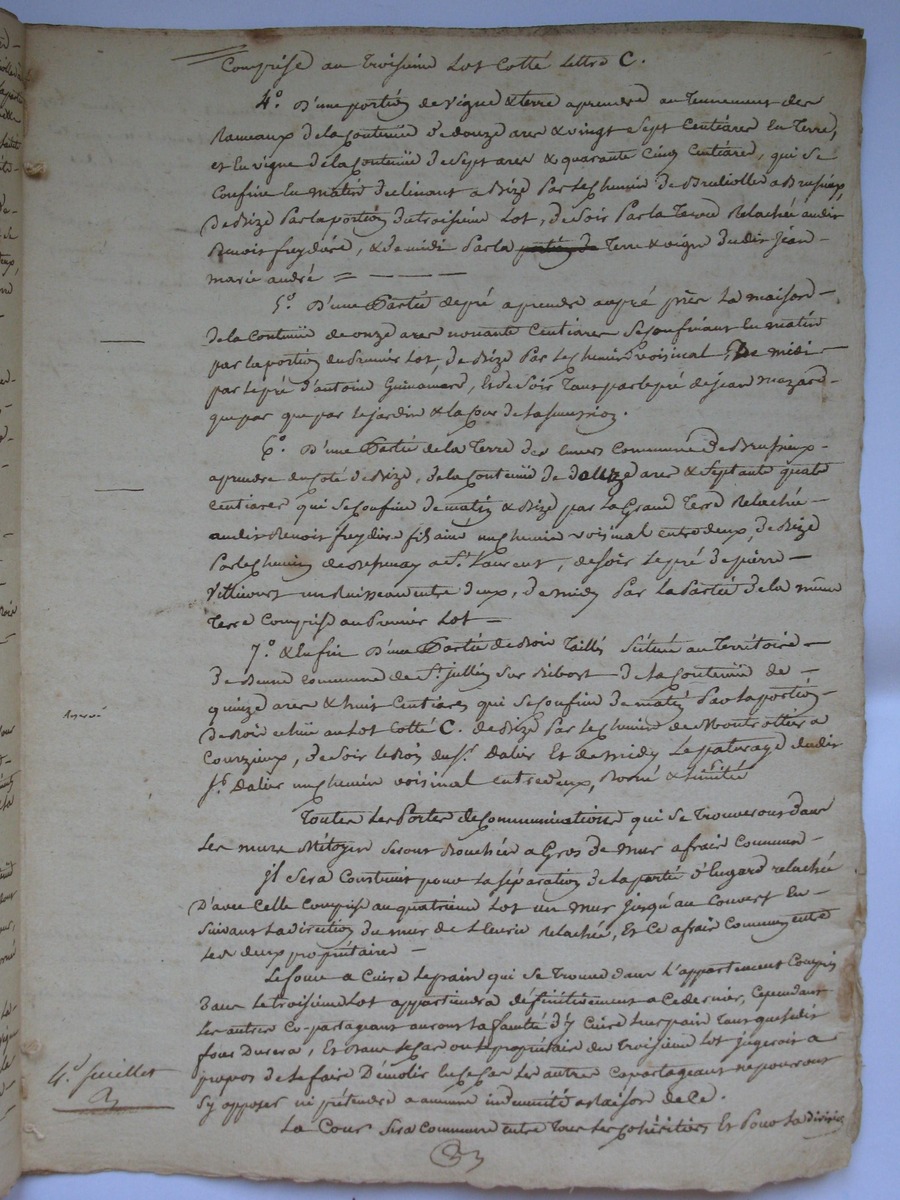 Comprise au troisieme Lot Cotté Lettre C.
4.º D'une portion de vigne & terre a prendre au tennement des
Rameaux de la Contenüe de douze ares & vingt Sept Centiares En terre,
et En vigne de la Contenüe de Sept ares & quarante Cinq Centiares, qui Se
Confine En matin a Bize Par le Chemin de Brulliolles a Brusieux,
De Bize Par la portion du troisieme Lot, de Soir Par la terre Relachée audit
Benoit freydiere, & de midi Par la portion de Terre & vigne dudit Jean
marie andré
5.º D'une Partie de pré a prendre au pré près La maison
de la Contenüe de onze ares nonante Centiares Se Confinant En matin
par la portion du Premier Lot, de Bize Par le Chemin voisinal, De midi
par le pré d'antoine Guinamard, Et de Soir Tant par le pré de jean mazard
que par le jardin & la Cour de la
6.º D'une Partie de la Terre des Commune de Brusieux
a prendre du Coté de Bize, de la Contenüe de douze ares & Septante quatre
Centiares qui Se Confine de matin & Bize par la Grand Terre Relachée
audit Benoit freydiere fils ainé un chemin voisinal entre deux, de Bize
Par le Chemin de a S.t Laurent, de Soir Le pré de pierre
Villecourt un Ruisseau entre deux, de midy Par La Partie de la même
Terre Comprise au Premier Lot
7.º & Enfin D'une Partie de Bois Taillis Scituée au Territoire
de Commune de S.t jullien sur Bibost de la Contenüe de
quinze ares & huit Centiares qui Se Confine de matin Par la portion
de Bois echüe au Lot Cotté C. de Bize Par le Chemin de Montrottier a
Courzieux, de Soir le Bois du S.r Dalier Et de midy Le paturage dudit
S.r Dalier un chemin voisinal entre deux, Borné & Limité
Toutes Les Portes de Communication qui Se Trouveront Dans
Les murs Mitoyen Seront Bouchées a Gros de mur a frais Commun
jl Sera Construit pour La Séparation de La partie d'Engard relachée
D'avec Celle Comprise au quatrieme Lot un mur jusqu'au Couvert En
Suivant La direction du mur de L'Ecurie Relachée, Et Ce a frais Commun entre
Les deux propriétaires
Le four a Cuire Le pain qui Se Trouve dans L'appartement Compris
Dans Le troisieme Lot appartiendra définitivement a Ce dernier, Cependant
Les autres Co-partageant auront La faculté d'y Cuire Leur pain Tant que Ledit
four Durera, Et Dans Le Cas ou Le propriétaire du Troisieme Lot jugeroit a
propos de Le faire Démolir En Ce Cas Les autres Copartageant ne pourront
S'y opposer ni prétendre a aucune indemnité a raison de Ce.
La Cour Sera Commune entre Tous Les Cohéritiers Et Pour La division
4.e feuillet